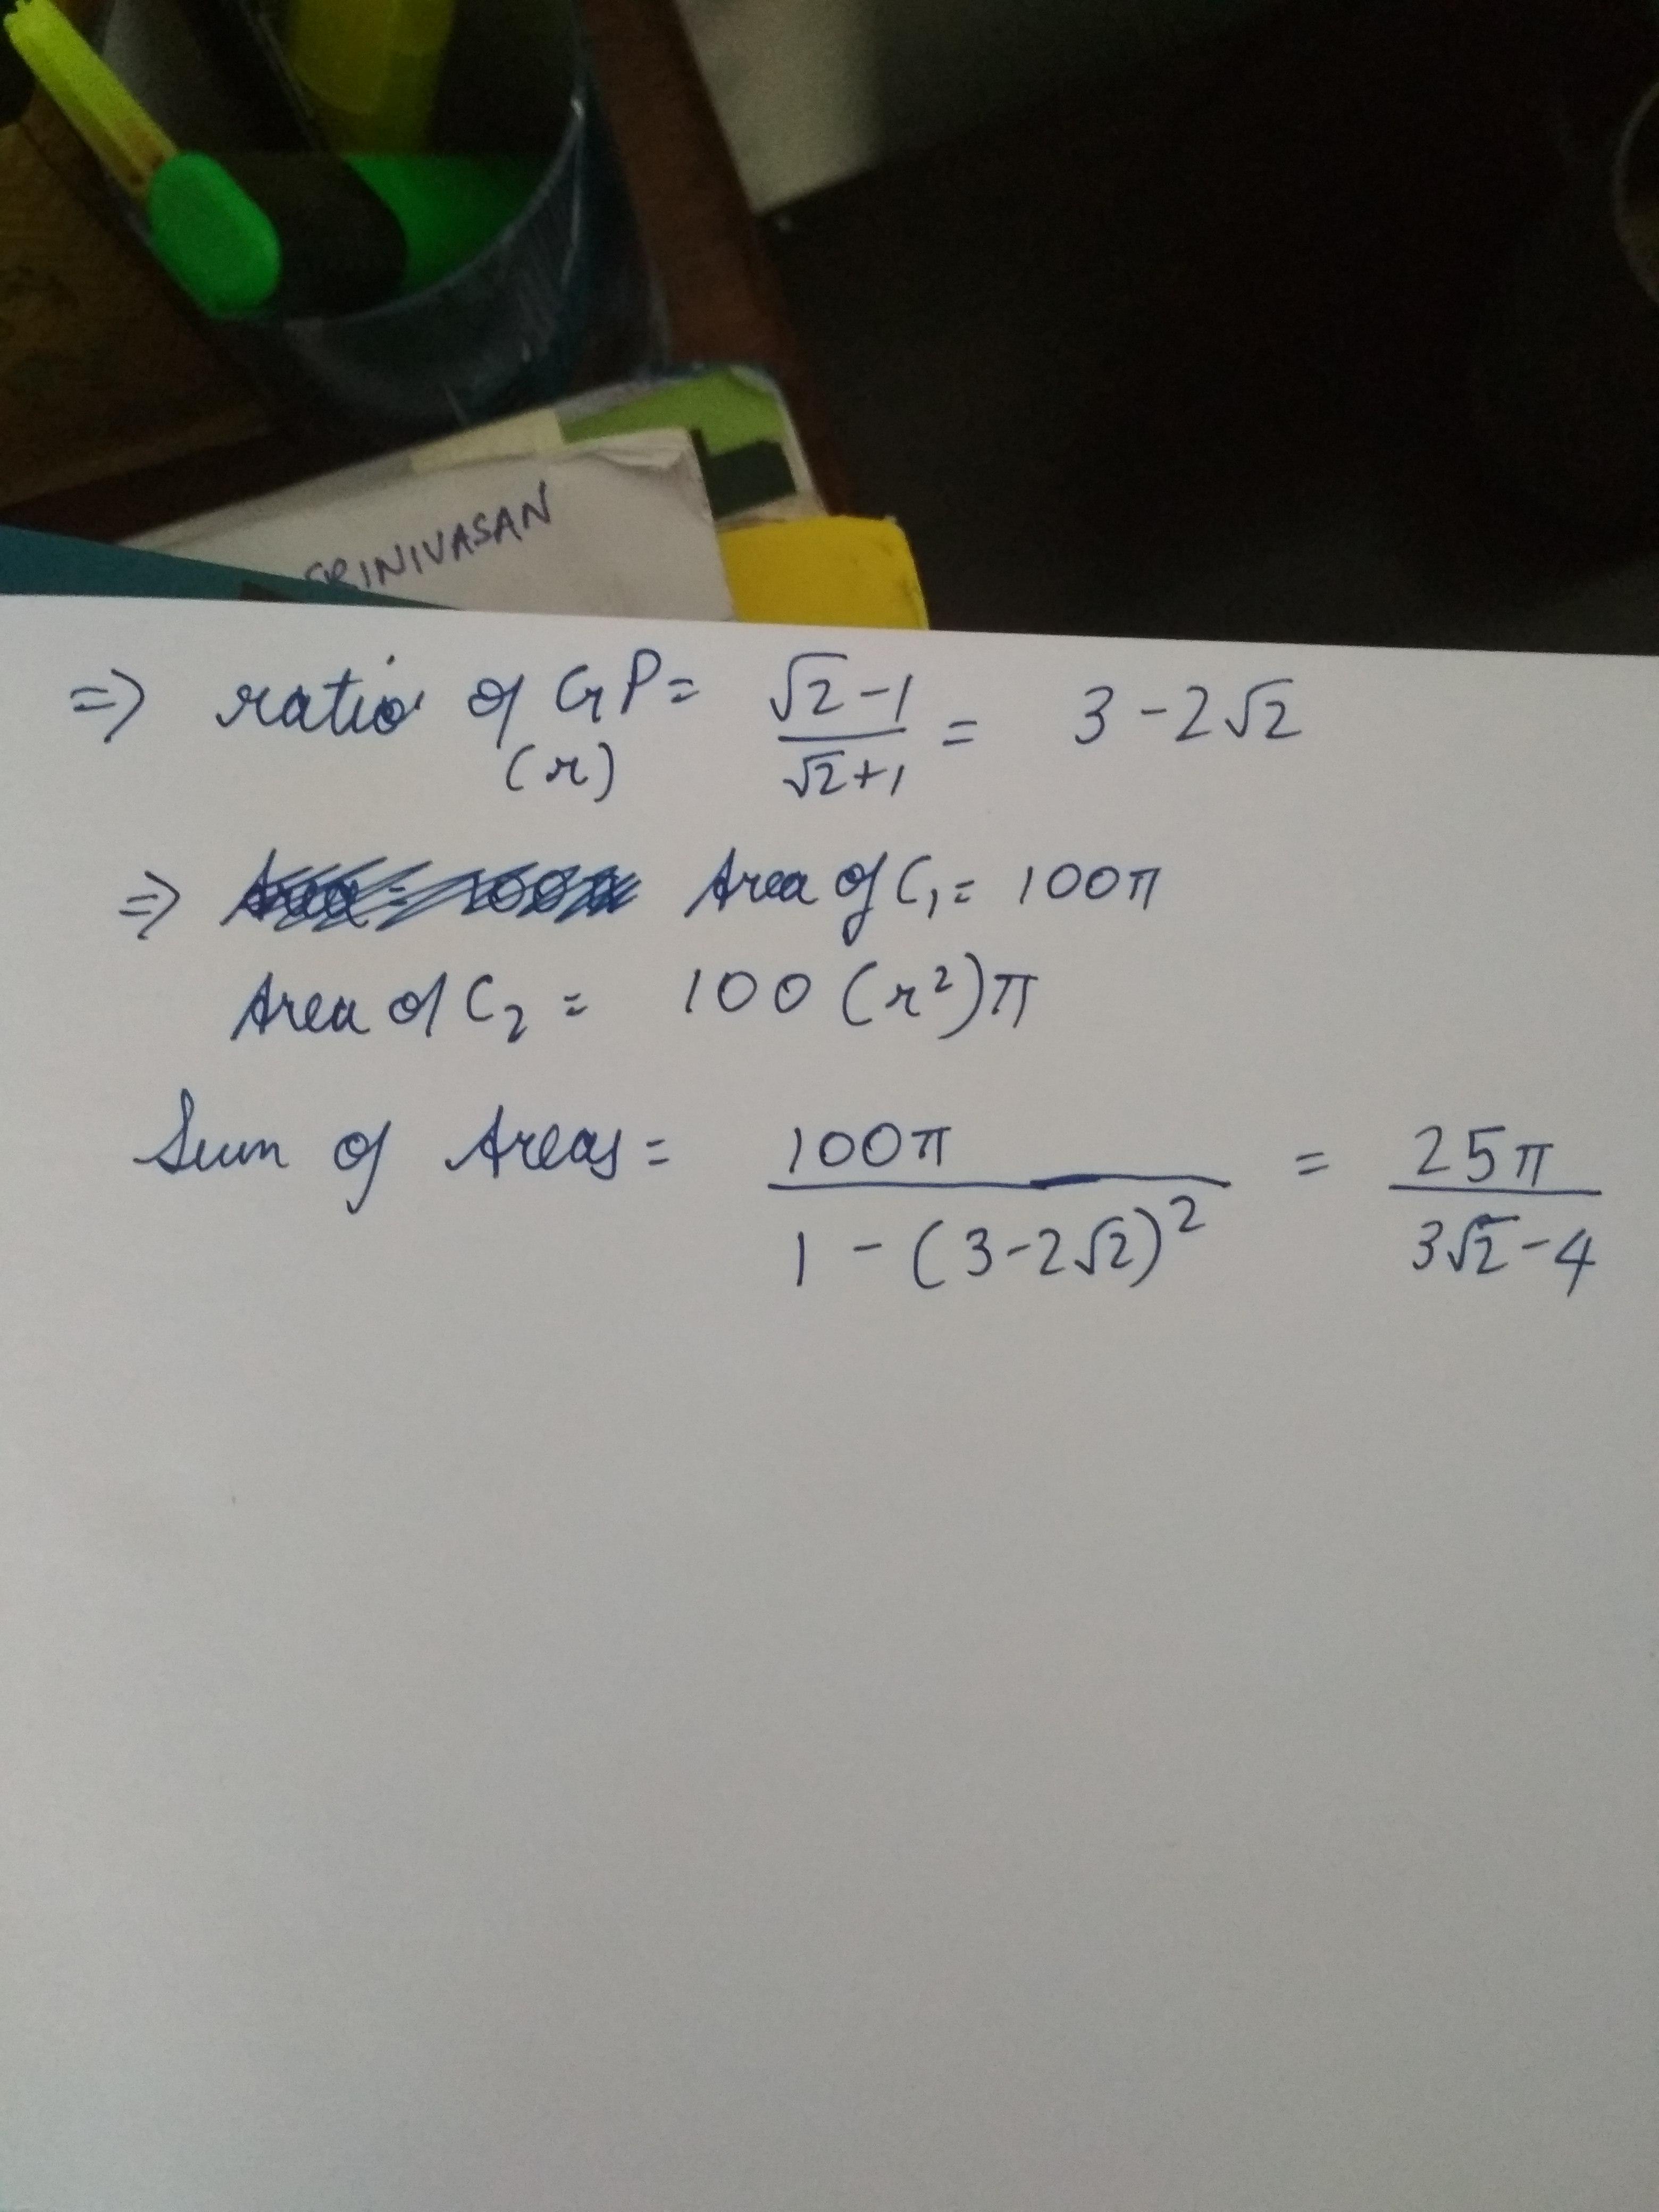 SRINIVASAN
=> ratio of GP = √2-1/√2+1 = 3-2√2
(r)
=> Area of C₁ = 100π
Area of C₂ = 100 (r²)π
Sum of Areas = 100π/1-(3-2√2)² = 25π/3√2-4